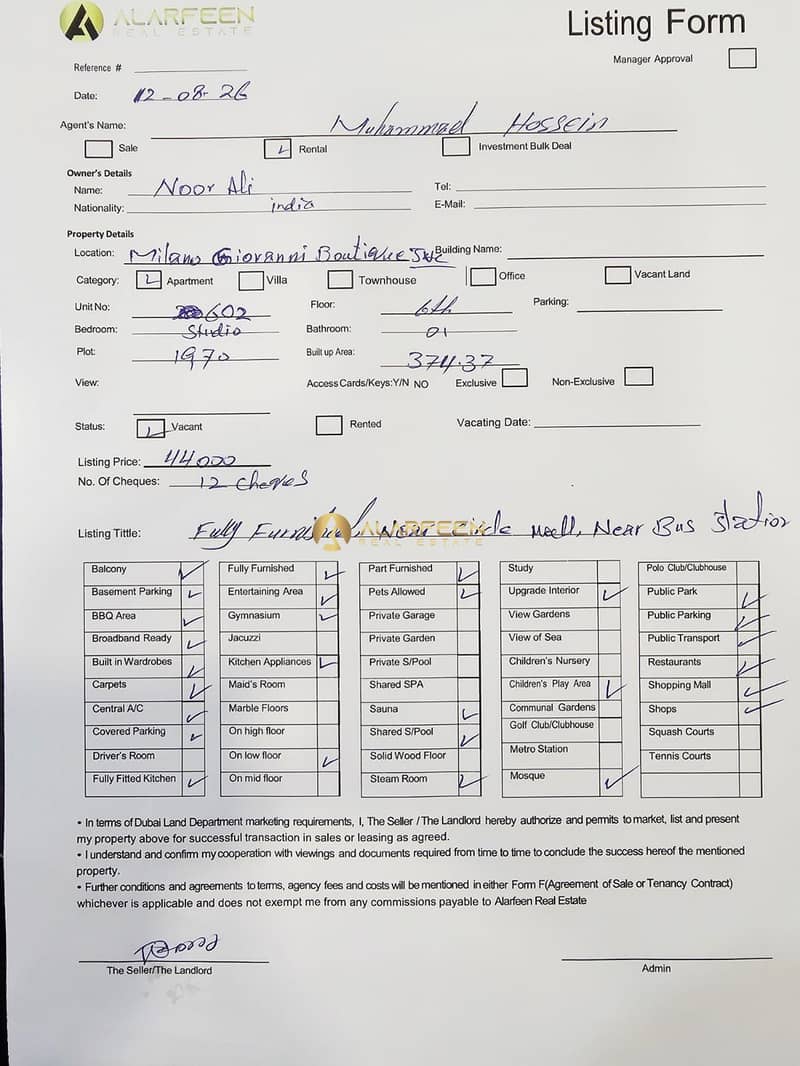 ALARFEEN
REAL ESTATE
Listing Form
Manager Approval
Reference #
Date: 12-08-26
Agent's Name: Muhammad Hossein
Sale Rental Investment Bulk Deal
Owner's Details
Name: Noor Ali Tel:
Nationality: india E-Mail:
Property Details
Location: Milano Giovanni Boutique Building Name:
Category: Apartment Villa Townhouse Office Vacant Land
Unit No: 602 Floor: 6th Parking:
Bedroom: Studio Bathroom: 01
Plot: 1970 Built up Area: 374.37
View: Access Cards/Keys:Y/N NO Exclusive Non-Exclusive
Status: Vacant Rented Vacating Date:
Listing Price: 44000
No. Of Cheques: 12 cheques
Listing Tittle: Fully Furnished, Near circle mall, Near Bus station
ALARFEEN
REAL ESTATE
Balcony Fully Furnished Part Furnished Study Polo Club/Clubhouse
Basement Parking Entertaining Area Pets Allowed Upgrade Interior Public Park
BBQ Area Gymnasium Private Garage View Gardens Public Parking
Broadband Ready Jacuzzi Private Garden View of Sea Public Transport
Built in Wardrobes Kitchen Appliances Private S/Pool Children's Nursery Restaurants
Carpets Maid's Room Shared SPA Children's Play Area Shopping Mall
Central A/C Marble Floors Sauna Communal Gardens Shops
Covered Parking On high floor Shared S/Pool Golf Club/Clubhouse Squash Courts
Driver's Room On low floor Solid Wood Floor Metro Station Tennis Courts
Fully Fitted Kitchen On mid floor Steam Room Mosque
• In terms of Dubai Land Department marketing requirements, I, The Seller / The Landlord hereby authorize and permits to market, list and present
my property above for successful transaction in sales or leasing as agreed.
• I understand and confirm my cooperation with viewings and documents required from time to time to conclude the success hereof the mentioned
property.
• Further conditions and agreements to terms, agency fees and costs will be mentioned in either Form F(Agreement of Sale or Tenancy Contract)
whichever is applicable and does not exempt me from any commissions payable to Alarfeen Real Estate
The Seller/The Landlord Admin